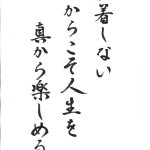 着しない
からこそ人生を
真から楽しめる